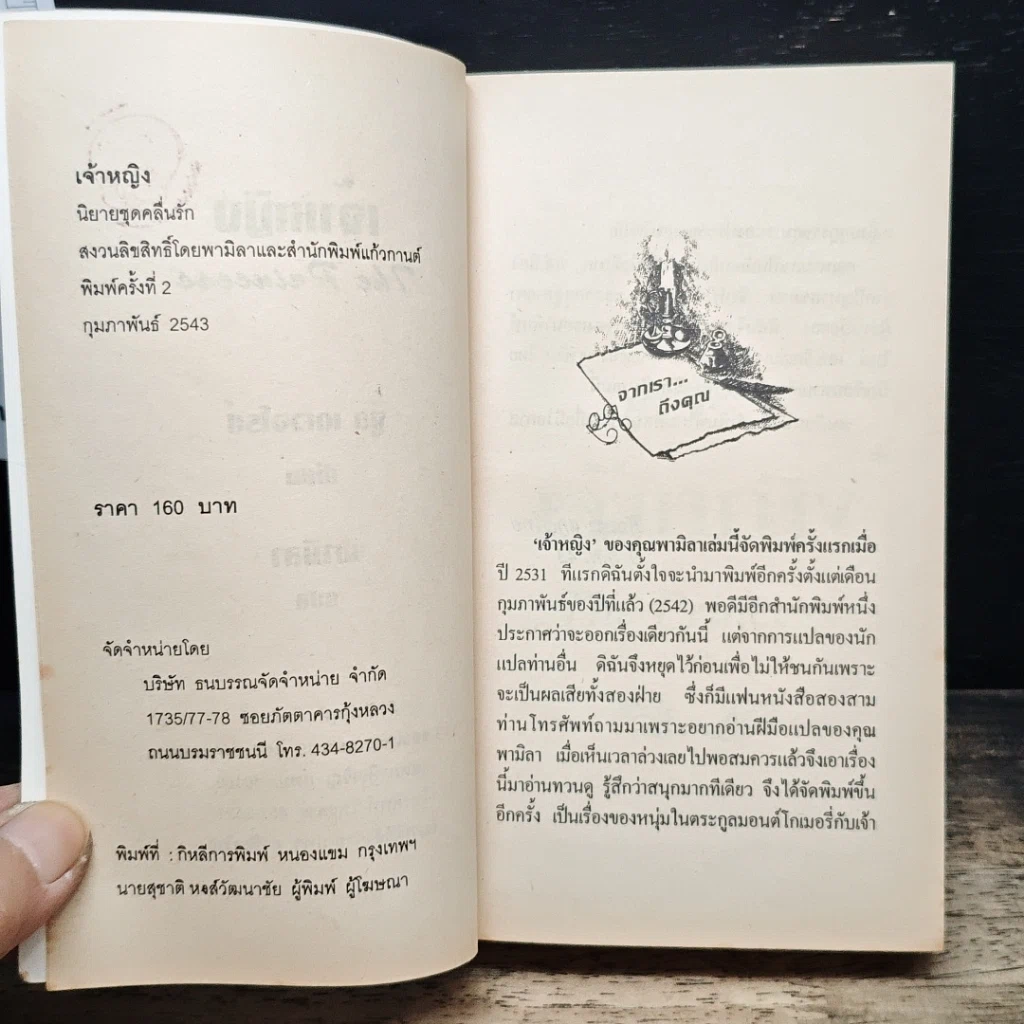 เจ้าหญิง
นิยายชุดคลื่นรัก
สงวนลิขสิทธิ์โดยพามิลาและสำนักพิมพ์แก้วกานต์
พิมพ์ครั้งที่ 2
กุมภาพันธ์ 2543
ราคา 160 บาท
จัดจำหน่ายโดย
บริษัท ธนบรรณจัดจำหน่าย จำกัด
1735/77-78 ซอยภัตตาคารกุ้งหลวง
ถนนบรมราชชนนี โทร. 434-8270-1
พิมพ์ที่ : กิหลีการพิมพ์ หนองแขม กรุงเทพฯ
นายสุชาติ หงส์วัฒนาชัย ผู้พิมพ์ ผู้โฆษณา
จากเรา...
ถึงคุณ
‘เจ้าหญิง’ ของคุณพามิลาเล่มนี้จัดพิมพ์ครั้งแรกเมื่อ
ปี 2531 ทีแรกดิฉันตั้งใจจะนำมาพิมพ์อีกครั้งตั้งแต่เดือน
กุมภาพันธ์ของปีที่แล้ว (2542) พอดีมีอีกสำนักพิมพ์หนึ่ง
ประกาศว่าจะออกเรื่องเดียวกันนี้ แต่จากการแปลของนัก
แปลท่านอื่น ดิฉันจึงหยุดไว้ก่อนเพื่อไม่ให้ชนกันเพราะ
จะเป็นผลเสียทั้งสองฝ่าย ซึ่งก็มีแฟนหนังสือสองสาม
ท่านโทรศัพท์ถามมาเพราะอยากอ่านฝีมือแปลของคุณ
พามิลา เมื่อเห็นเวลาล่วงเลยไปพอสมควรแล้วจึงเอาเรื่อง
นี้มาอ่านทวนดู รู้สึกว่าสนุกมากทีเดียว จึงได้จัดพิมพ์ขึ้น
อีกครั้ง เป็นเรื่องของหนุ่มในตระกูลมอนต์โกเมอรี่กับเจ้า